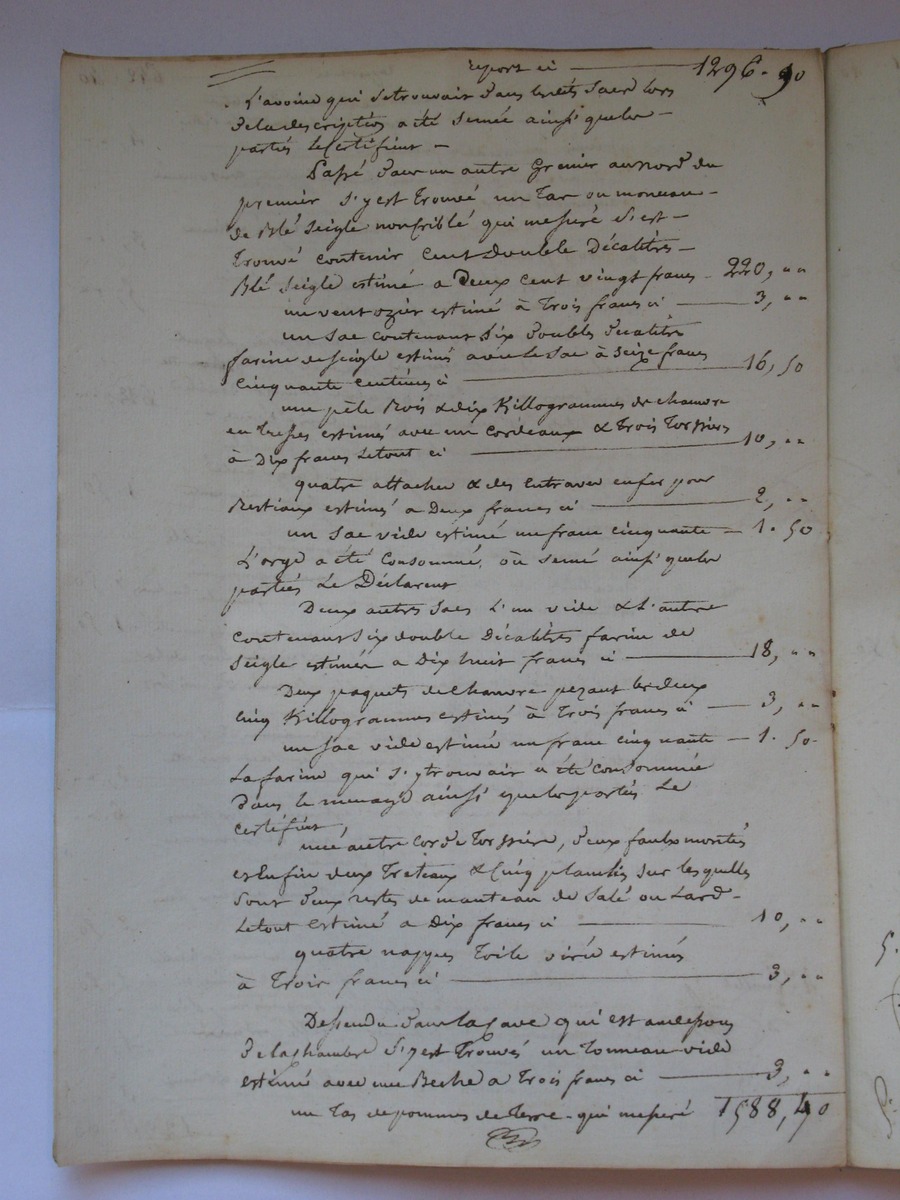 report ci — 1296. 90
L'avoine qui se trouvait dans les dits sacs lors
de la description a été semée ainsi que les
parties le certifient
Passé dans un autre Grenier au nord du
premier s'y est trouvé un tas ou monceau
de Blé seigle non criblé qui mesuré s'est
trouvé contenir cent double Décalitres
Blé seigle estimé a Deux cent vingt francs 220, ""
un vent ozier estimé à trois francs ci — 3, ""
un sac contenant six doubles décalitre
farine de seigle estimés avec le sac à seize francs
cinquante centimes ci — 16, 50
une pèle Bois & dix Killogrammes de chamvre
en tresses estimés avec un cordeaux & trois torssiers
à Dix francs le tout ci — 10, ""
quatre attaches & des entraves en fer pour
Bestiaux estimés a Deux francs ci — 2, ""
un sac vide estimé un franc cinquante — 1. 50
L'orge a été consommé, où semé ainsi que les
parties Le Déclarent
Deux autres sacs l'un vide & l'autre
contenant six double Décalitres farine de
seigle estimée a Dix huit francs ci — 18, ""
Deux paquets de chamvre pezant les deux
cinq Killogrammes estimés à trois francs ci — 3, ""
un sac vide estimé un franc cinquante — 1. 50
La farine qui s'y trouvait a été consommée
dans le menage ainsi que les parties Le
certifient,
une autre corde torssière, deux faulx montés
et enfin deux treteaux & cinq planches sur lesquelles
sont deux restes de manteau de salé ou Lard
Le tout estimé a Dix francs ci — 10, ""
quatre nappes toile estimés
à trois francs ci — 3, ""
Dessendu dans la cave qui est au dessous
de la chambre s'y est trouvés un tonneau vide
estimé avec une Beche a trois francs ci — 3, ""
un tas de pommes de terre qui mesuré 1588, 40